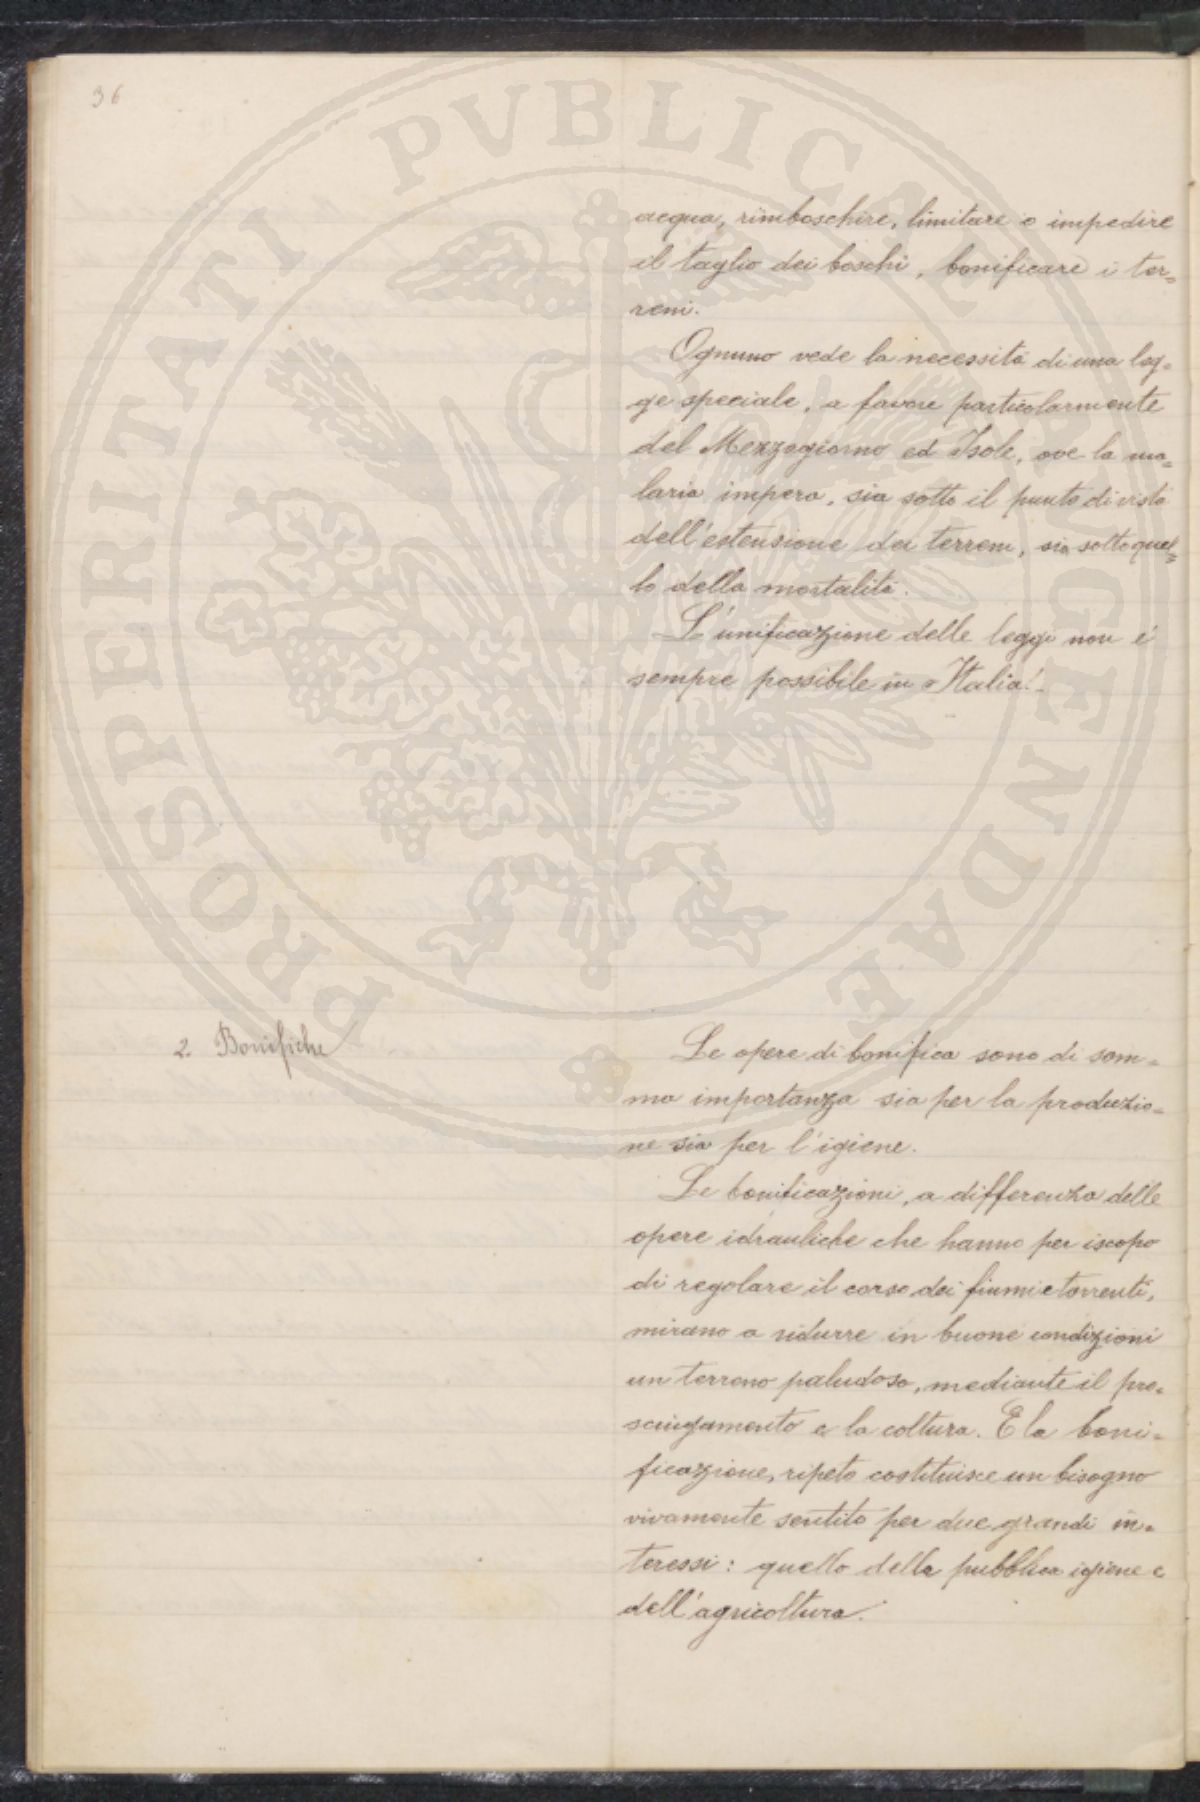 36
acqua, rimboschire, limitare o impedire
il taglio dei boschi, bonificare i ter=
reni.
Ognuno vede la necessità di una leg=
ge speciale, a favore particolarmente
del Mezzogiorno ed Isole, ove la ma=
laria impera, sia sotto il punto di vista
dell'estensione dei terreni, sia sotto quel=
lo della mortalità.
L'unificazione delle leggi non è
sempre possibile in Italia!
2. Bonifiche
Le opere di bonifica sono di som=
ma importanza sia per la produzio=
ne sia per l'igiene.
Le bonificazioni, a differenza delle
opere idrauliche che hanno per iscopo
di regolare il corso dei fiumi e torrenti,
mirano a ridurre in buone condizioni
un terreno paludoso, mediante il pro=
sciugamento e la coltura. E la boni=
ficazione, ripeto costituisce un bisogno
vivamente sentito per due grandi in=
teressi: quello della pubblica igiene e
dell'agricoltura.
PROSPERITATI PVBLICAE AVGENDAE